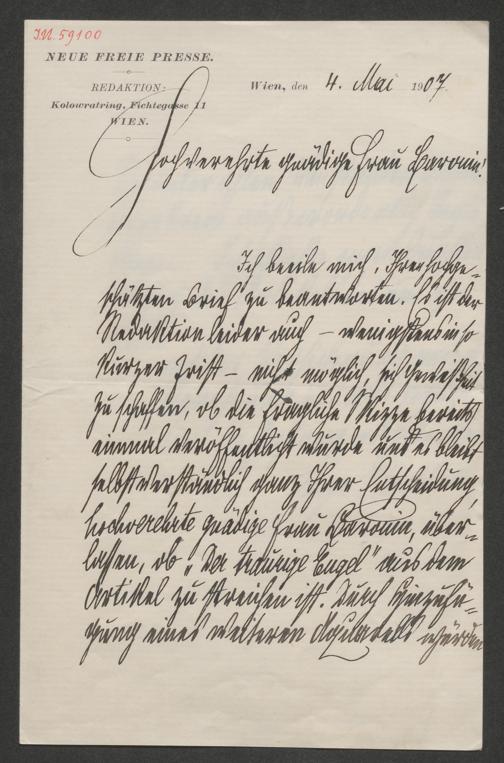 I.N. 59100
NEUE FREIE PRESSE.
REDAKTION:
Kolowratring, Fichtegasse 11
WIEN.
Wien, den 4. Mai 1907
Hochverehrte gnädige Frau Baronin!
Ich beeile mich, Ihren hochge-
schätzten Brief zu beantworten. Es ist der
Redaktion leider auch – wenigstens in so
kurzer Frist – nicht möglich, sich Gewißheit
zu schaffen, ob die fragliche Skizze bereits
einmal veröffentlicht wurde und es bleibt
selbstverständlich ganz Ihrer Entscheidung,
hochverehrte gnädige Frau Baronin, über-
lassen, ob „Der traurige Engel“ aus dem
Artikel zu streichen ist. Durch Hinzufü-
gung eines weiteren Aquarells würden